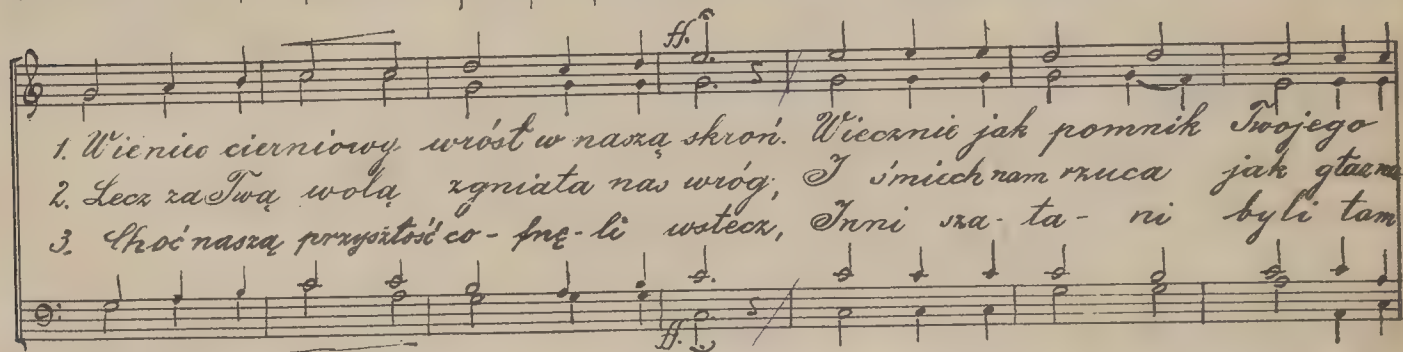 ff.
1. Wieniec cierniowy wrósł w naszą skroń. Wiecznie jak pomnik Twojego
2. Lecz za Twą wolą zgniata nas wróg, I śmiech nam rzuca jak głaz na
3. Choć naszą przyszłość co-fnę-li wstecz, Inni sza-ta-ni byli tam
ff.